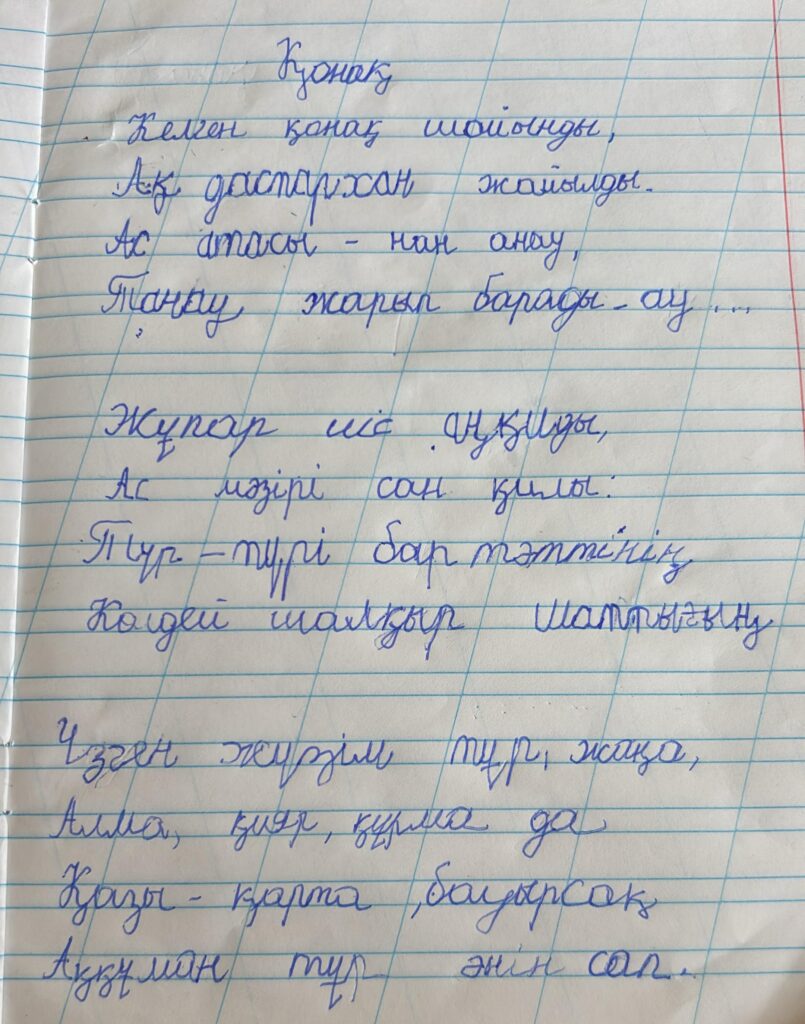 Қонақ
Келген қонақ шайынды,
Ақ дастархан жайылды.
Ас атасы - нан анау,
Танау жарып барады-ау ...
Жұпар иіс аңқиды,
Ас мәзірі сан қилы:
Түр-түрі бар тәттінің
Көлдей шалқыр шаттығың
Үзген жүзім тұр, жаңа,
Алма, қияр, құрма да
Қазы-қарта, бауырсақ
Аққұман тұр әнін сап.